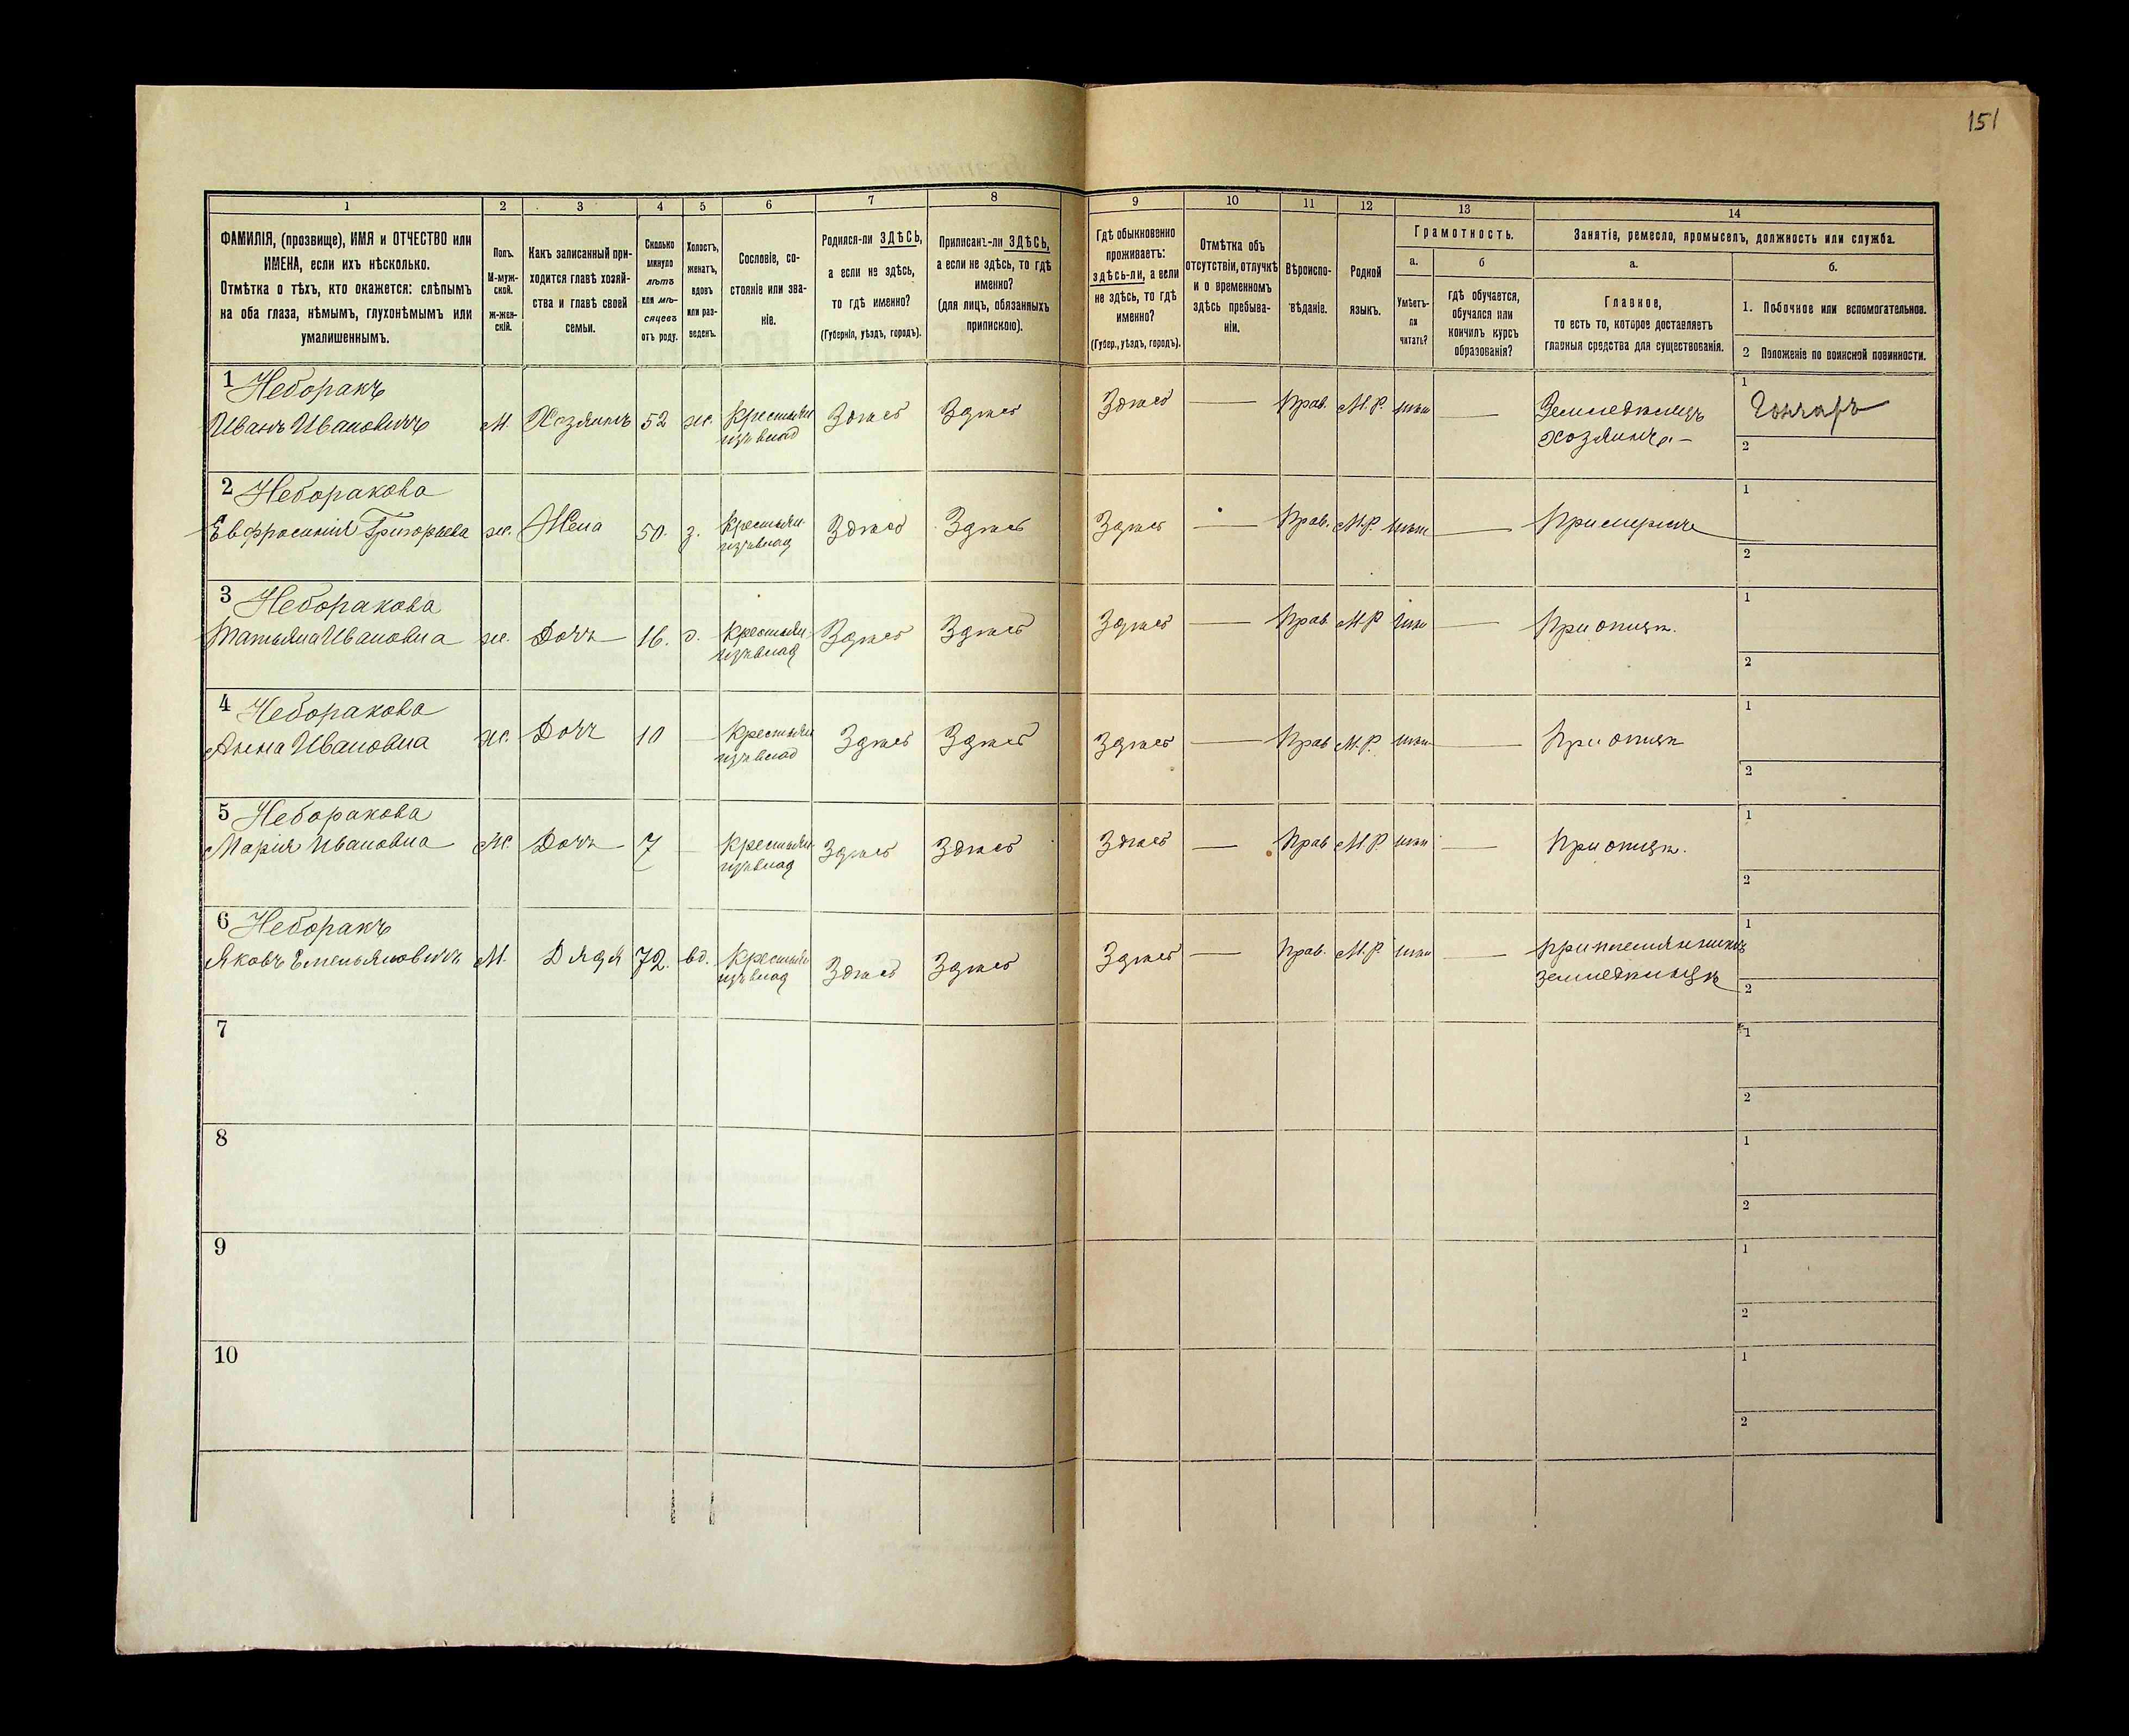 151
1 2 3 4 5 6 7 8 9 10 11 12 13 14
ФАМИЛІЯ, (прозвище), ИМЯ и ОТЧЕСТВО или
ИМЕНА, если ихъ нѣсколько.
Отмѣтка о тѣхъ, кто окажется: слѣпымъ
на оба глаза, нѣмымъ, глухонѣмымъ или
умалишеннымъ.
Полъ.
М-муж-
ской.
ж-жен-
скій.
Какъ записанный при-
ходится главѣ хозяй-
ства и главѣ своей
семьи.
Сколько
минуло
лѣтъ
или мѣ-
сяцевъ
отъ роду.
Холостъ,
женатъ,
вдовъ
или раз-
веденъ.
Сословіе, со-
стояніе или зва-
ніе.
Родился-ли ЗДѢСЬ,
а если не здѣсь,
то гдѣ именно?
(Губернія, уѣздъ, городъ).
Приписанъ-ли ЗДѢСЬ,
а если не здѣсь, то гдѣ
именно?
(для лицъ, обязанныхъ
припискою).
Гдѣ обыкновенно
проживаетъ:
здѣсь-ли, а если
не здѣсь, то гдѣ
именно?
(Губер., уѣздъ, городъ).
Отмѣтка объ
отсутствіи, отлучкѣ
и о временномъ
здѣсь пребыва-
ніи.
Вѣроиспо-
вѣданіе.
Родной
языкъ.
Грамотность.
а.
Умѣетъ-
ли
читать?
б
гдѣ обучается,
обучался или
кончилъ курсъ
образованія?
Занятіе, ремесло, промыселъ, должность или служба.
а.
Главное,
то есть то, которое доставляетъ
главныя средства для существованія.
б.
1. Побочное или вспомогательное.
2 Положеніе по воинской повинности.
1 Неборакъ
Иванъ Ивановичъ м. Хозяинъ 52 ж. Крестьян Здѣсь Здѣсь Здѣсь — Прав. М.Р. нѣт — Земледѣлецъ 1 Гончаръ
изъ влад хозяинъ 2
2 Неборакова
Евфросинія Григорьева ж. Жена 50. з. Крестьян. Здѣсь Здѣсь Здѣсь — Прав. М.Р. нѣт — При мужѣ 1
изъ влад 2
3 Неборакова
Татьяна Ивановна ж. Дочь 16. д. Крестьян. Здѣсь Здѣсь Здѣсь — Прав М.Р нѣт — При отцѣ. 1
изъ влад 2
4 Неборакова
Анна Ивановна ж. Дочь 10 — Крестьян Здѣсь Здѣсь Здѣсь — Прав М.Р. нѣт — При отцѣ 1
изъ влад 2
5 Неборакова
Марія Ивановна ж. Дочь 7 — Крестьян. Здѣсь Здѣсь Здѣсь — Прав М.Р. нѣт — При отцѣ. 1
изъ влад 2
6 Неборакъ
Яковъ Емельяновичъ М. Дядя 72. вд. Крестьян Здѣсь Здѣсь Здѣсь — Прав. М.Р. нѣт — При племянникѣ 1
изъ влад земледѣлецъ 2
7 1
2
8 1
2
9 1
2
10 1
2